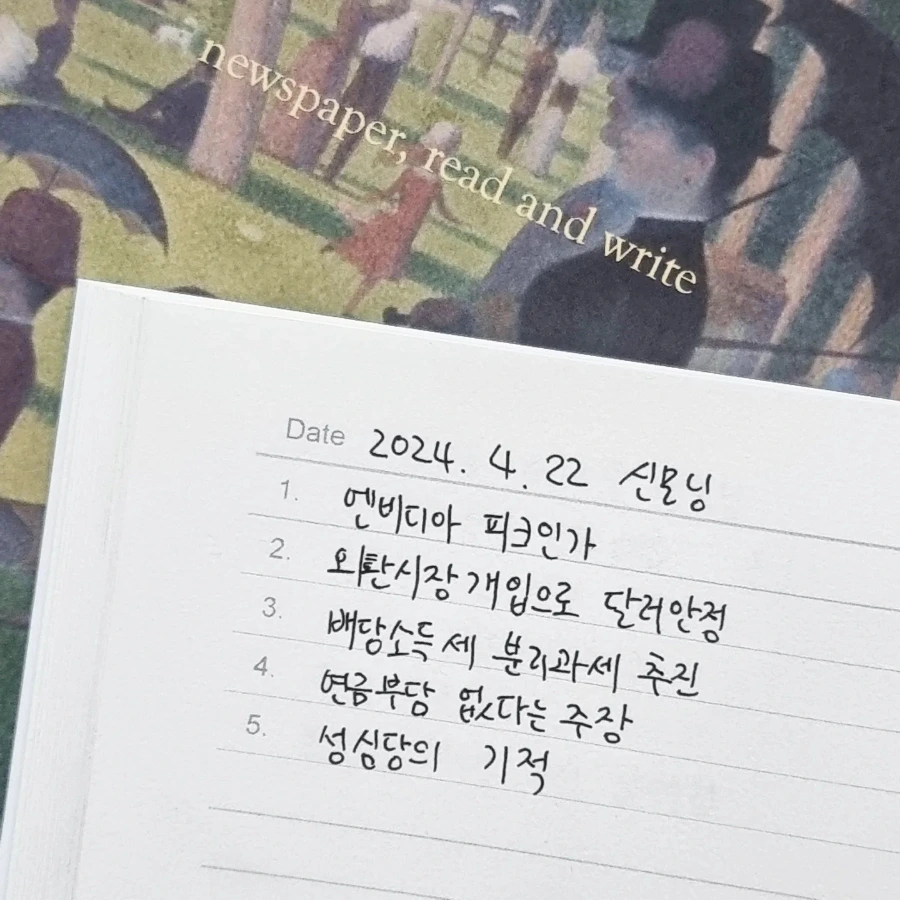 newspaper, read and write
Date 2024. 4. 22 신모닝
1. 엔비디아 피크인가
2. 외환시장 개입으로 달러안정
3. 배당소득세 분리과세 추진
4. 연금부담 없다는 주장
5. 성심당의 기적